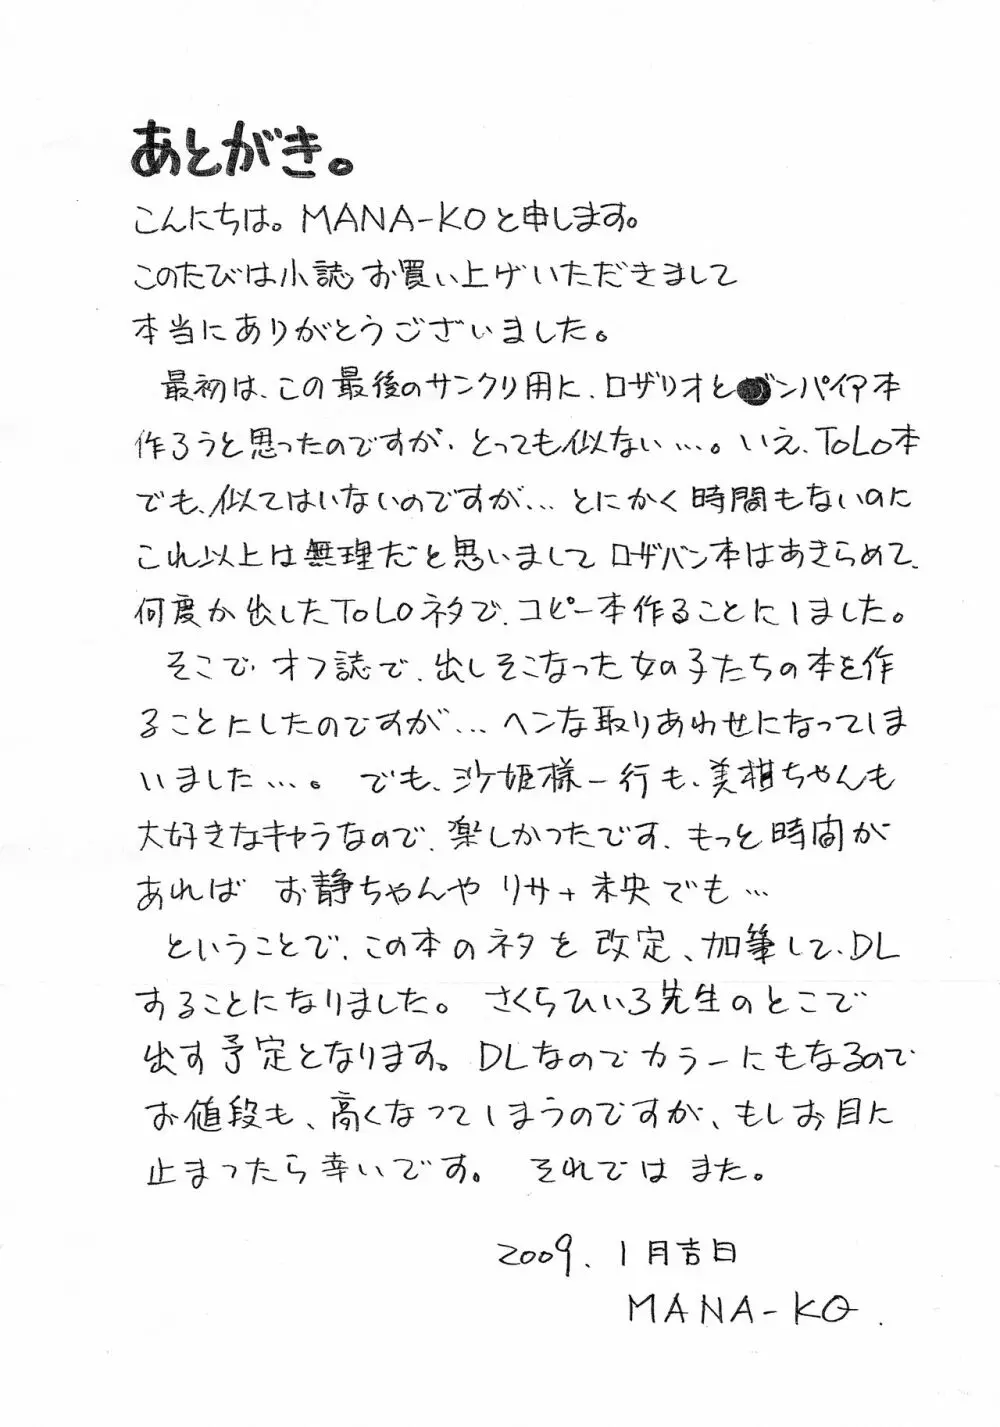 あとがき。
こんにちは。MANA-KOと申します。
このたびは小誌お買い上げいただきまして
本当にありがとうございました。
最初は、この最後のサンクリ用に、ロザリオとバンパイア本
作ろうと思ったのですが、とっても似ない…。いえ、ToLo本
でも、似てはいないのですが…とにかく時間もないのに
これ以上は無理だと思いましてロザバン本はあきらめて、
何度か出したToLoネタで、コピー本作ることにしました。
そこで、オフ誌で、出しそこなった女の子たちの本を作
ることにしたのですが…ヘンな取りあわせになってしま
いました…。でも、沙姫様一行も、美柑ちゃんも
大好きなキャラなので、楽しかったです、もっと時間が
あれば お静ちゃんや リサ+未央でも…
ということで、この本のネタを改定、加筆して、DL
することになりました。さくらひいろ先生のとこで
出す予定となります。DLなのでカラーにもなるので
お値段も、高くなってしまうのですが、もしお目に
止まったら幸いです。それでは また。
2009.1月吉日
MANA-KO.